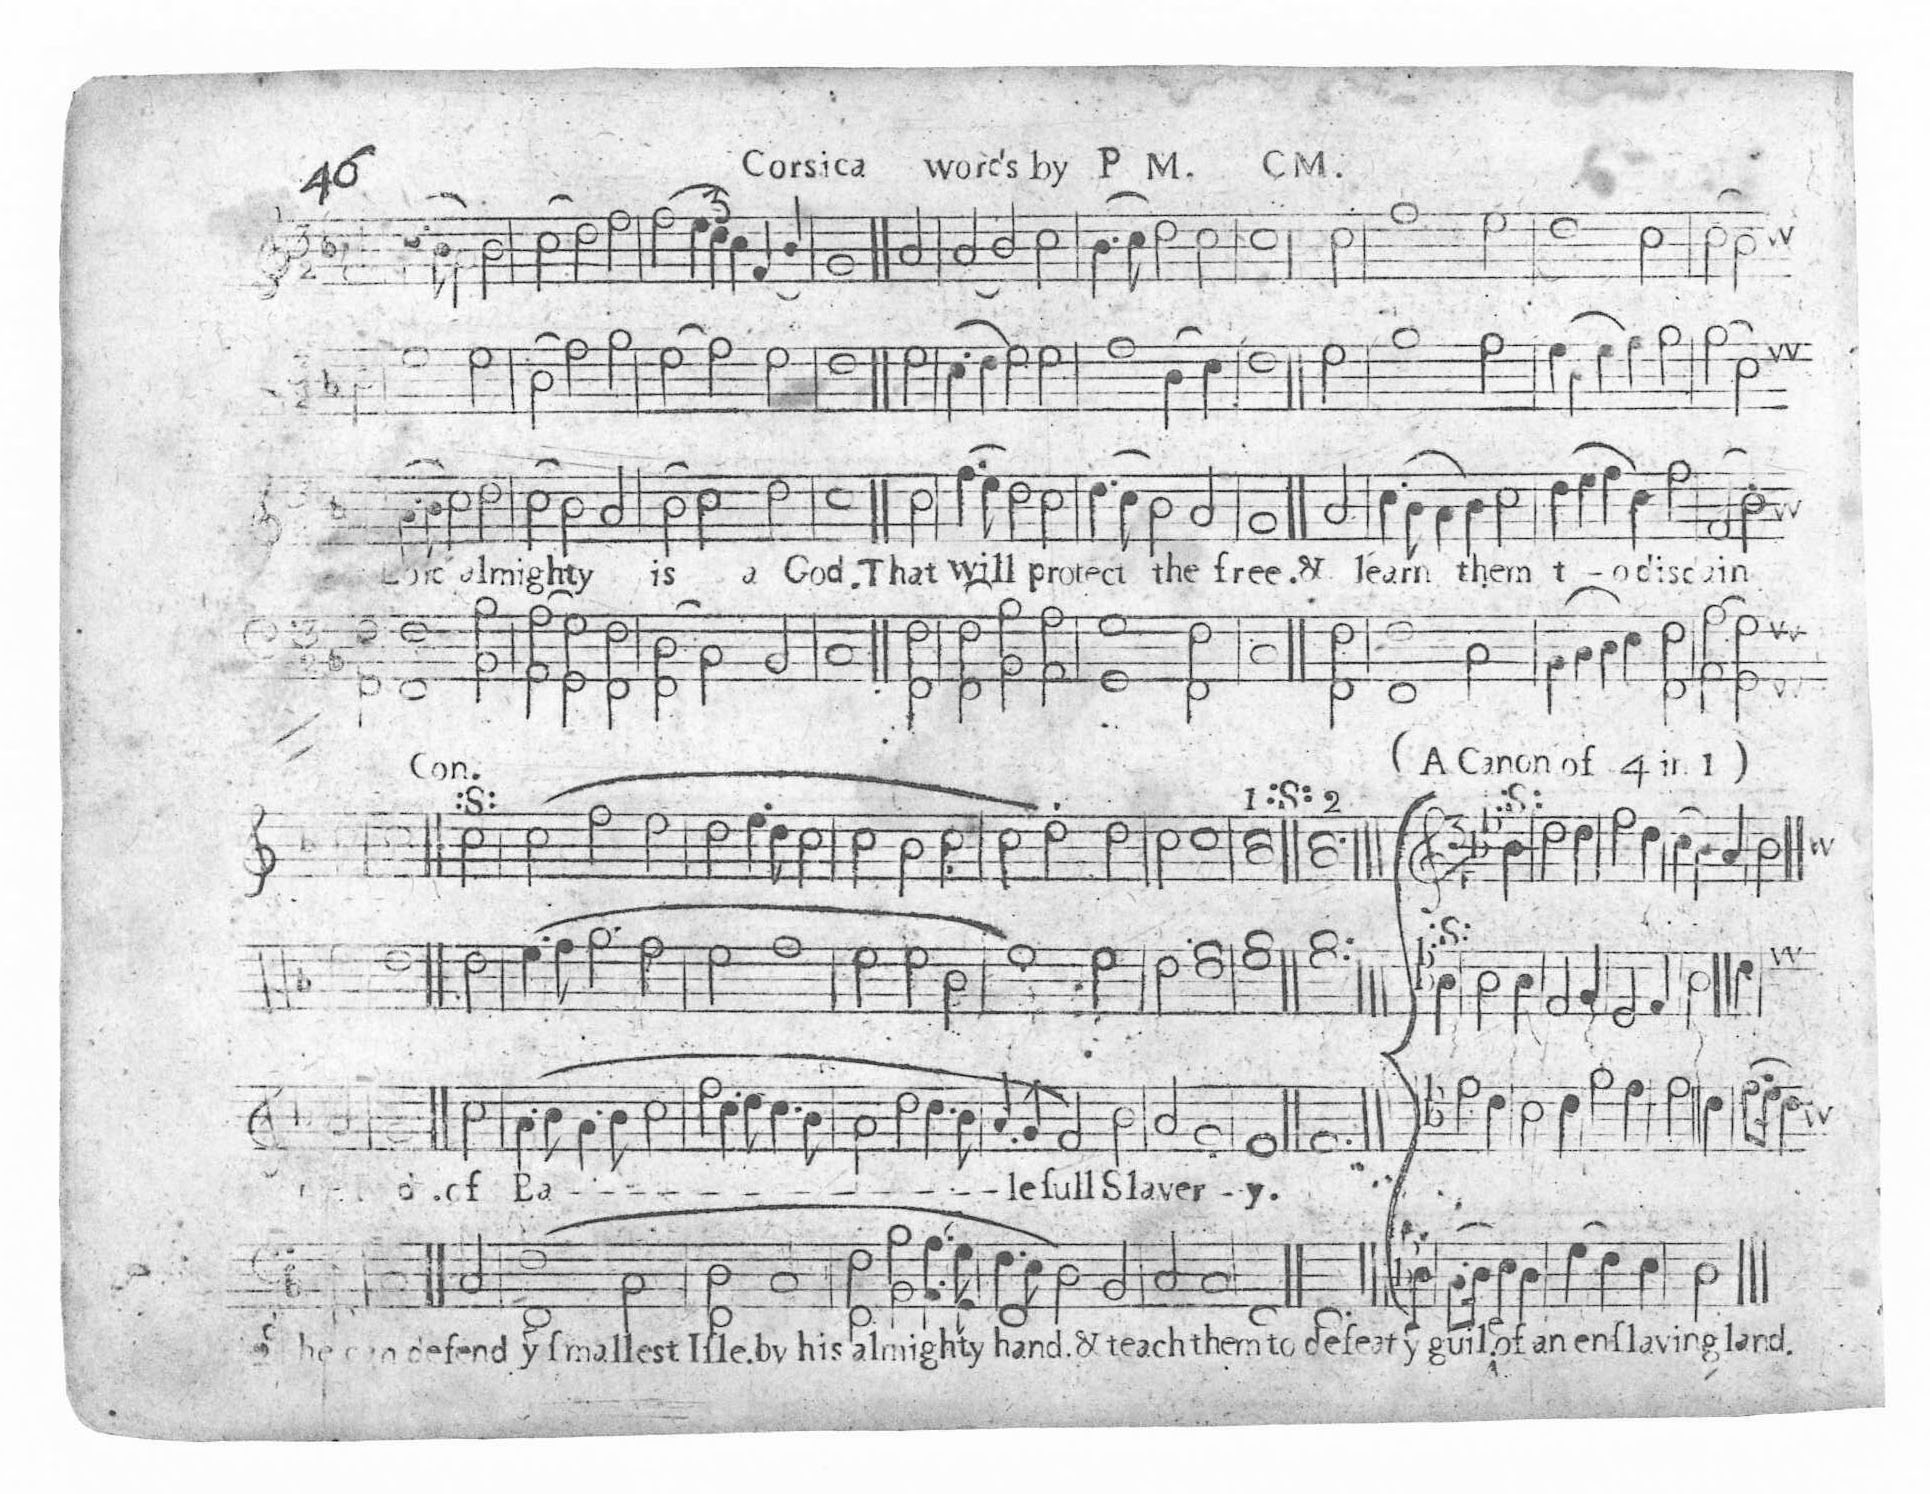 46
Corsica word's by P M. CM.
3
almighty is a God. That will protect the free. & learn them t - o disdain
Con.
(A Canon of 4 in 1)
:S: 1 :S: 2 :S:
:S:
.of Ba - - - - - - - - - - - lefull Slaver - y.
he can defend ẏ ſmallest Iſle. by his almighty hand. & teach them to defeat ẏ guile of an enſlaving land.